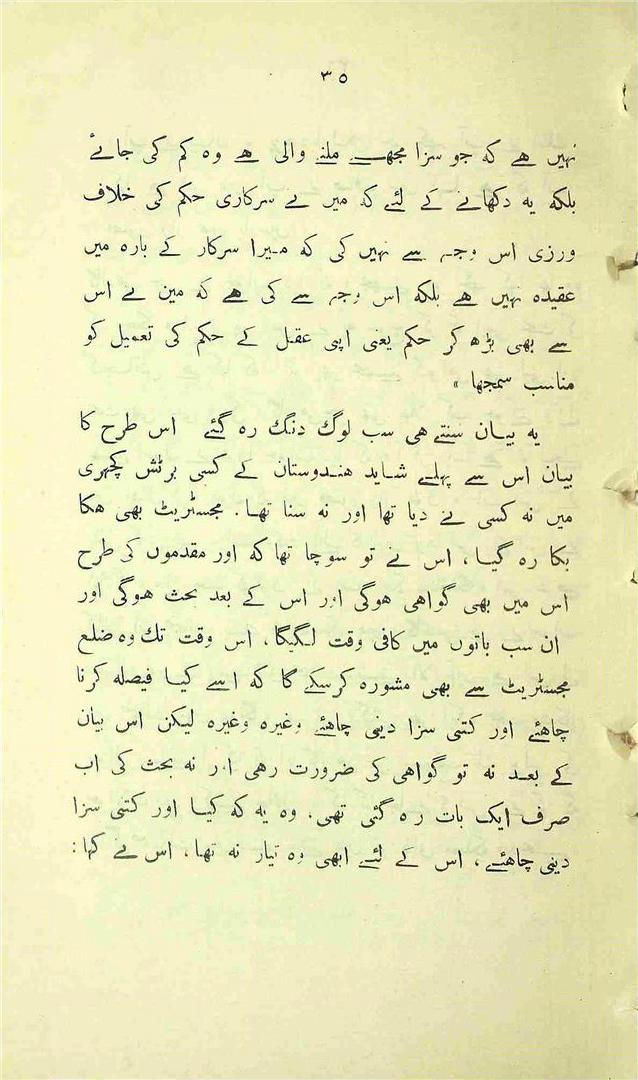 ۳۵
نہیں ہے کہ جو سزا مجھے ملنے والی ہے وہ کم کی جائے
بلکہ یہ دکھانے کے لئے کہ میں نے سرکاری حکم کی خلاف
ورزی اس وجہ سے نہیں کی کہ میرا سرکار کے بارہ میں
عقیدہ نہیں ہے بلکہ اس وجہ سے کی ہے کہ مین نے اس
سے بھی بڑھ کر حکم یعنی اپنی عقل کے حکم کی تعمیل کو
مناسب سمجھا »
یہ بیان سنتے ہی سب لوگ دنگ رہ گئے اس طرح کا
بیان اس سے پہلے شاید ہندوستان کے کسی برٹش کچہری
میں نہ کسی نے دیا تھا اور نہ سنا تھا۔ مجسٹریٹ بھی ہکا
بکا رہ گیا، اس نے تو سوچا تھا کہ اور مقدموں کی طرح
اس میں بھی گواہی ہوگی اور اس کے بعد بحث ہوگی اور
ان سب باتوں میں کافی وقت لگیگا، اس وقت تک وہ ضلع
مجسٹریٹ سے بھی مشورہ کرسکے گا کہ اسے کیا فیصلہ کرنا
چاہئے اور کتنی سزا دینی چاہئے وغیرہ وغیرہ لیکن اس بیان
کے بعد نہ تو گواہی کی ضرورت رہی اور نہ بحث کی اب
صرف ایک بات رہ گئی تھی، وہ یہ کہ کیا اور کتنی سزا
دینی چاہئے، اس کے لئے ابھی وہ تیار نہ تھا، اس نے کہا: